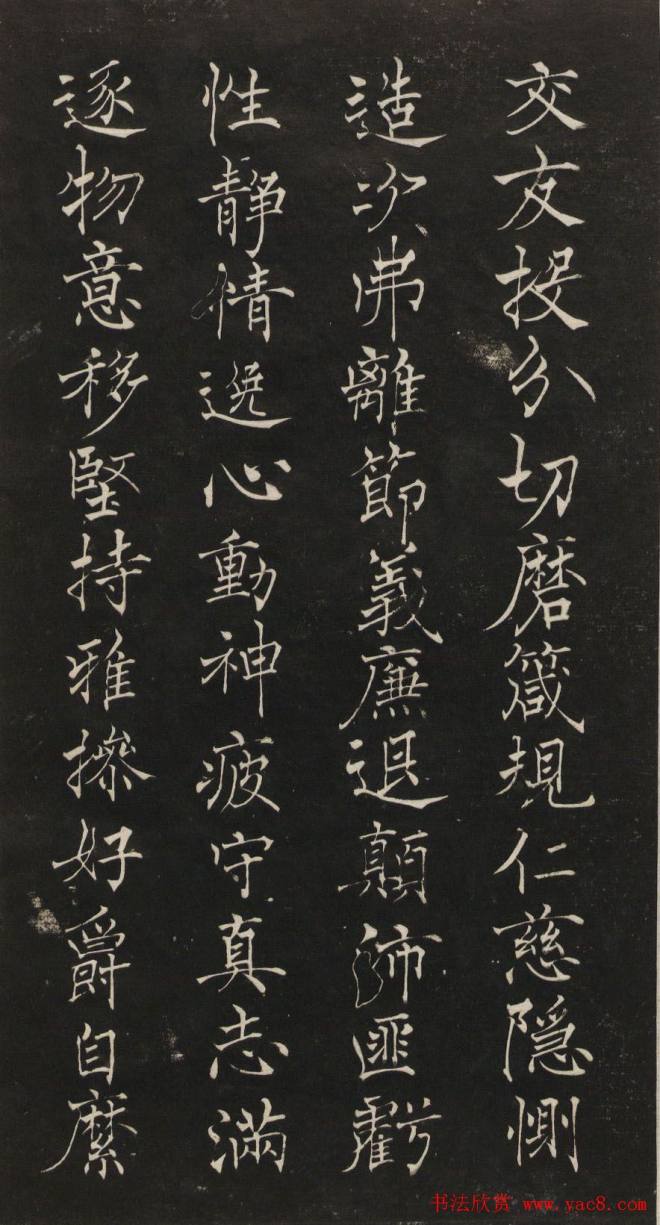 交友投分切磨箴規仁慈隱惻
造次弗離節義廉退顛沛匪虧
性靜情逸心動神疲守真志滿
逐物意移堅持雅操好爵自縻
书法欣赏 www.yac8.com